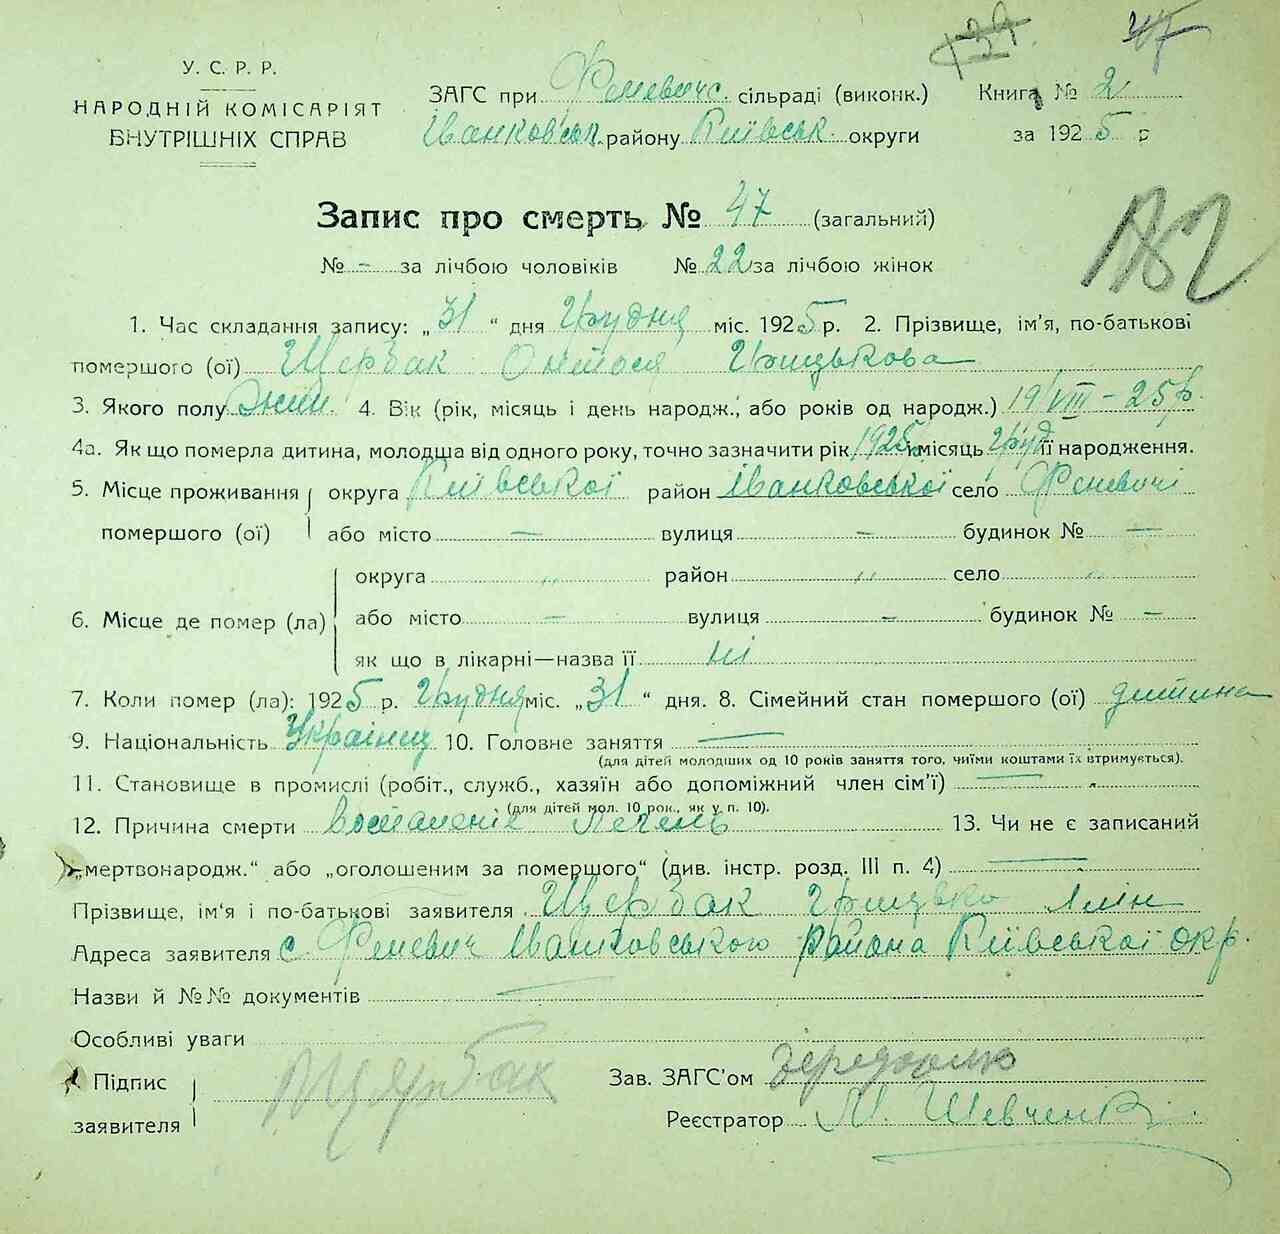 47
У. С. Р. Р.
НАРОДНІЙ КОМІСАРІЯТ
ВНУТРІШНІХ СПРАВ
ЗАГС при Феневичс. сільраді (виконк.)
Іванковськ. району Київськ. округи
Книга № 2
за 1925 р
Запис про смерть № 47 (загальний)
№ – за лічбою чоловіків № 22 за лічбою жінок
1. Час складання запису: „31“ дня Грудня міс. 1925 р. 2. Прізвище, ім’я, по-батькові
помершого (ої) Щербак Онтося Грицькова
3. Якого полу Жин. 4. Вік (рік, місяць і день народж., або років од народж.) 19/VIII – 25 р.
4а. Як що померла дитина, молодша від одного року, точно зазначити рік 1925 місяць Груд її народження.
5. Місце проживання округа Київської район Іванковської село Феневичі
помершого (ої) або місто — вулиця — будинок № —
6. Місце де помер (ла) округа „ район „ село „
або місто — вулиця — будинок № —
як що в лікарні—назва її ні
7. Коли помер (ла): 1925 р. Грудня міс. „31“ дня. 8. Сімейний стан помершого (ої) дитина
9. Національність Українц 10. Головне заняття —
(для дітей молодших од 10 років заняття того, чиїми коштами їх втримується).
11. Становище в промислі (робіт., служб., хазяїн або допоміжний член сім’ї) —
(для дітей мол. 10 рок., як у п. 10).
12. Причина смерти Восталеніе Легень 13. Чи не є записаний
„мертвонародж.“ або „оголошеним за помершого“ (див. інстр. розд. III п. 4) —
Прізвище, ім’я і по-батькові заявителя Щербак Грицько
Адреса заявителя с. Феневич Іванховського района Київської окр.
Назви й №№ документів —
Особливі уваги
Підпис заявителя Щербак
Зав. ЗАГС’ом
Реєстратор М. Шевченко